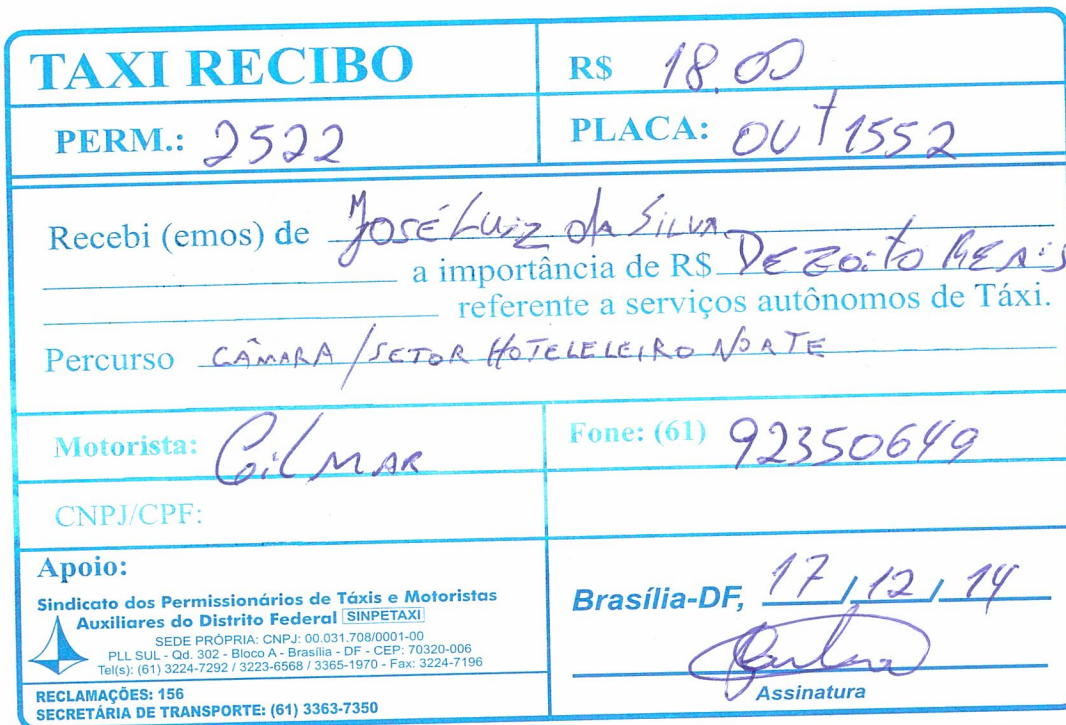 TAXI RECIBO
R$ 18,00
PERM.: 2522
PLACA: OUT 1552
Recebi (emos) de José Luiz da Silva
a importância de R$ Dezoito Reais
referente a serviços autônomos de Táxi.
Percurso CÂMARA / SETOR HOTELELEIRO NORTE
Motorista: Gilmar
Fone: (61) 92350649
CNPJ/CPF:
Apoio:
Sindicato dos Permissionários de Táxis e Motoristas
Auxiliares do Distrito Federal SINPETAXI
SEDE PRÓPRIA: CNPJ: 00.031.708/0001-00
PLL SUL - Qd. 302 - Bloco A - Brasília - DF - CEP: 70320-006
Tel(s): (61) 3224-7292 / 3223-6568 / 3365-1970 - Fax: 3224-7196
RECLAMAÇÕES: 156
SECRETÁRIA DE TRANSPORTE: (61) 3363-7350
Brasília-DF, 17 / 12 / 14
Assinatura